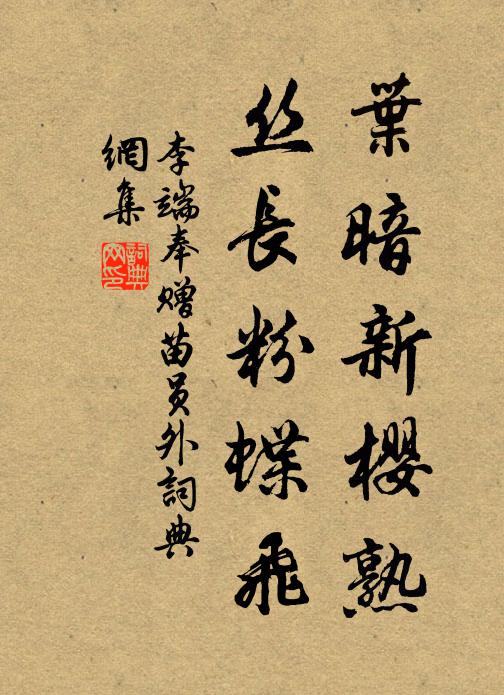 葉暗新櫻熟
丝長粉蝶飛
李端奉贈苗员外詞典
網集
詞典
网印